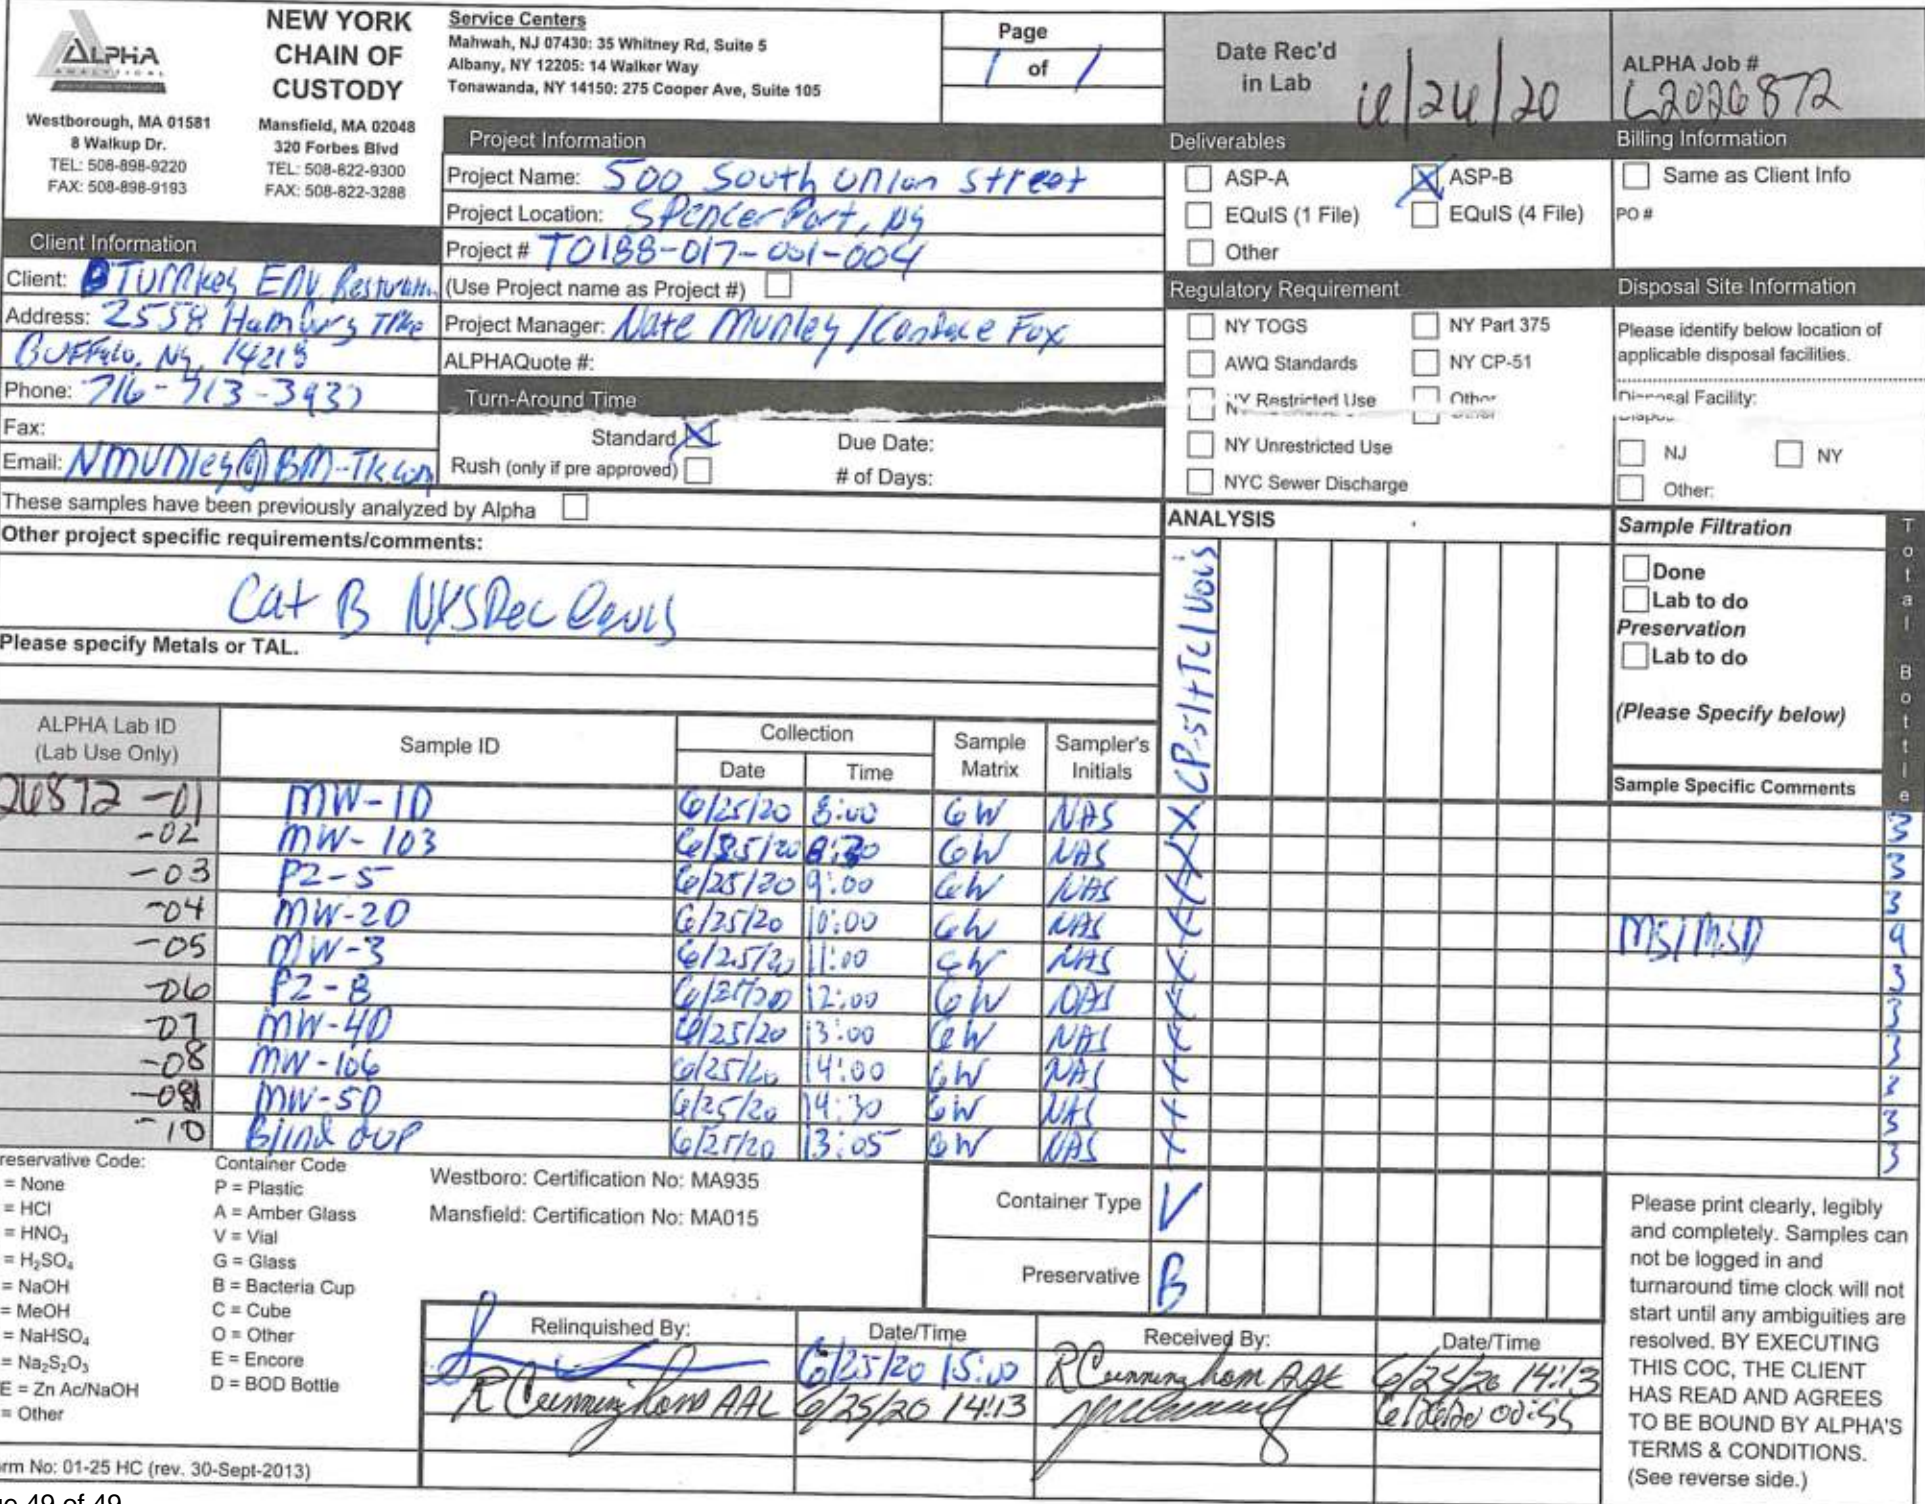 ALPHA
ANALYTICAL
Westborough, MA 01581
8 Walkup Dr.
TEL: 508-898-9220
FAX: 508-898-9193
NEW YORK
CHAIN OF
CUSTODY
Mansfield, MA 02048
320 Forbes Blvd
TEL: 508-822-9300
FAX: 508-822-3288
Service Centers
Mahwah, NJ 07430: 35 Whitney Rd, Suite 5
Albany, NY 12205: 14 Walker Way
Tonawanda, NY 14150: 275 Cooper Ave, Suite 105
Page
1 of 1
Date Rec'd
in Lab
6/26/20
ALPHA Job #
L2026872
Project Information
Project Name: 500 South Union Street
Project Location: Spencerport, NY
Project # T0188-017-001-004
(Use Project name as Project #)
Project Manager: Nate Munley / Candace Fox
ALPHAQuote #:
Client Information
Client: Turnkey Env Restoration
Address: 2558 Hamburg Tpke
Buffalo, NY, 14218
Phone: 716-713-3937
Fax:
Email: NMunley@BM-TK.com
Turn-Around Time
Standard X Due Date:
Rush (only if pre approved) # of Days:
Deliverables
ASP-A X ASP-B
EQuIS (1 File) EQuIS (4 File)
Other
Regulatory Requirement
NY TOGS NY Part 375
AWQ Standards NY CP-51
NY Restricted Use Other
NY Unrestricted Use
NYC Sewer Discharge
Billing Information
Same as Client Info
PO #
Disposal Site Information
Please identify below location of
applicable disposal facilities.
Disposal Facility:
NJ NY
Other:
These samples have been previously analyzed by Alpha
Other project specific requirements/comments:
Cat B NYSDec Equis
Please specify Metals or TAL.
ANALYSIS
CP-51+TCL VOCs
Sample Filtration
Done
Lab to do
Preservation
Lab to do
(Please Specify below)
Total Bottle
ALPHA Lab ID
(Lab Use Only)
Sample ID
Collection
Date Time
Sample
Matrix
Sampler's
Initials
Sample Specific Comments
26872 -01 MW-1D 6/25/20 8:00 GW NAS X 3
-02 MW-103 6/25/20 8:30 GW NAS X 3
-03 PZ-5 6/25/20 9:00 GW NAS X 3
-04 MW-2D 6/25/20 10:00 GW NAS X MS/MSD 9
-05 MW-3 6/25/20 11:00 GW NAS X 3
-06 PZ-8 6/25/20 12:00 GW NAS X 3
-07 MW-4D 6/25/20 13:00 GW NAS X 3
-08 MW-106 6/25/20 14:00 GW NAS X 3
-09 MW-5D 6/25/20 14:30 GW NAS X 3
-10 Blind dup 6/25/20 13:05 GW NAS X 3
reservative Code:
= None
= HCl
= HNO₃
= H₂SO₄
= NaOH
= MeOH
= NaHSO₄
= Na₂S₂O₃
E = Zn Ac/NaOH
= Other
Container Code
P = Plastic
A = Amber Glass
V = Vial
G = Glass
B = Bacteria Cup
C = Cube
O = Other
E = Encore
D = BOD Bottle
Westboro: Certification No: MA935
Mansfield: Certification No: MA015
Container Type V
Preservative B
Relinquished By: Date/Time Received By: Date/Time
6/25/20 15:00 R Cunningham AAL 6/25/20 14:13
R Cunningham AAL 6/25/20 14:13 6/26/20 00:55
Please print clearly, legibly
and completely. Samples can
not be logged in and
turnaround time clock will not
start until any ambiguities are
resolved. BY EXECUTING
THIS COC, THE CLIENT
HAS READ AND AGREES
TO BE BOUND BY ALPHA'S
TERMS & CONDITIONS.
(See reverse side.)
rm No: 01-25 HC (rev. 30-Sept-2013)
49 of 49